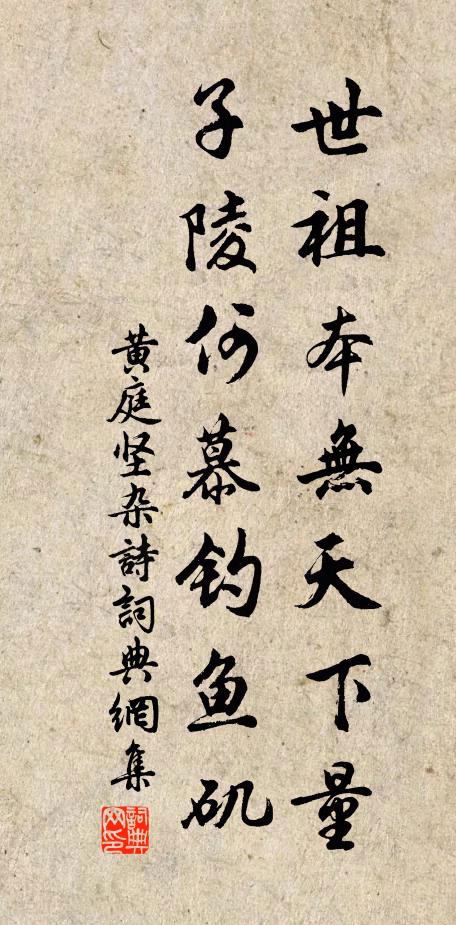 世祖本無天下量
子陵何慕钓鱼矶
黄庭坚杂詩詞典網集
詞典网印